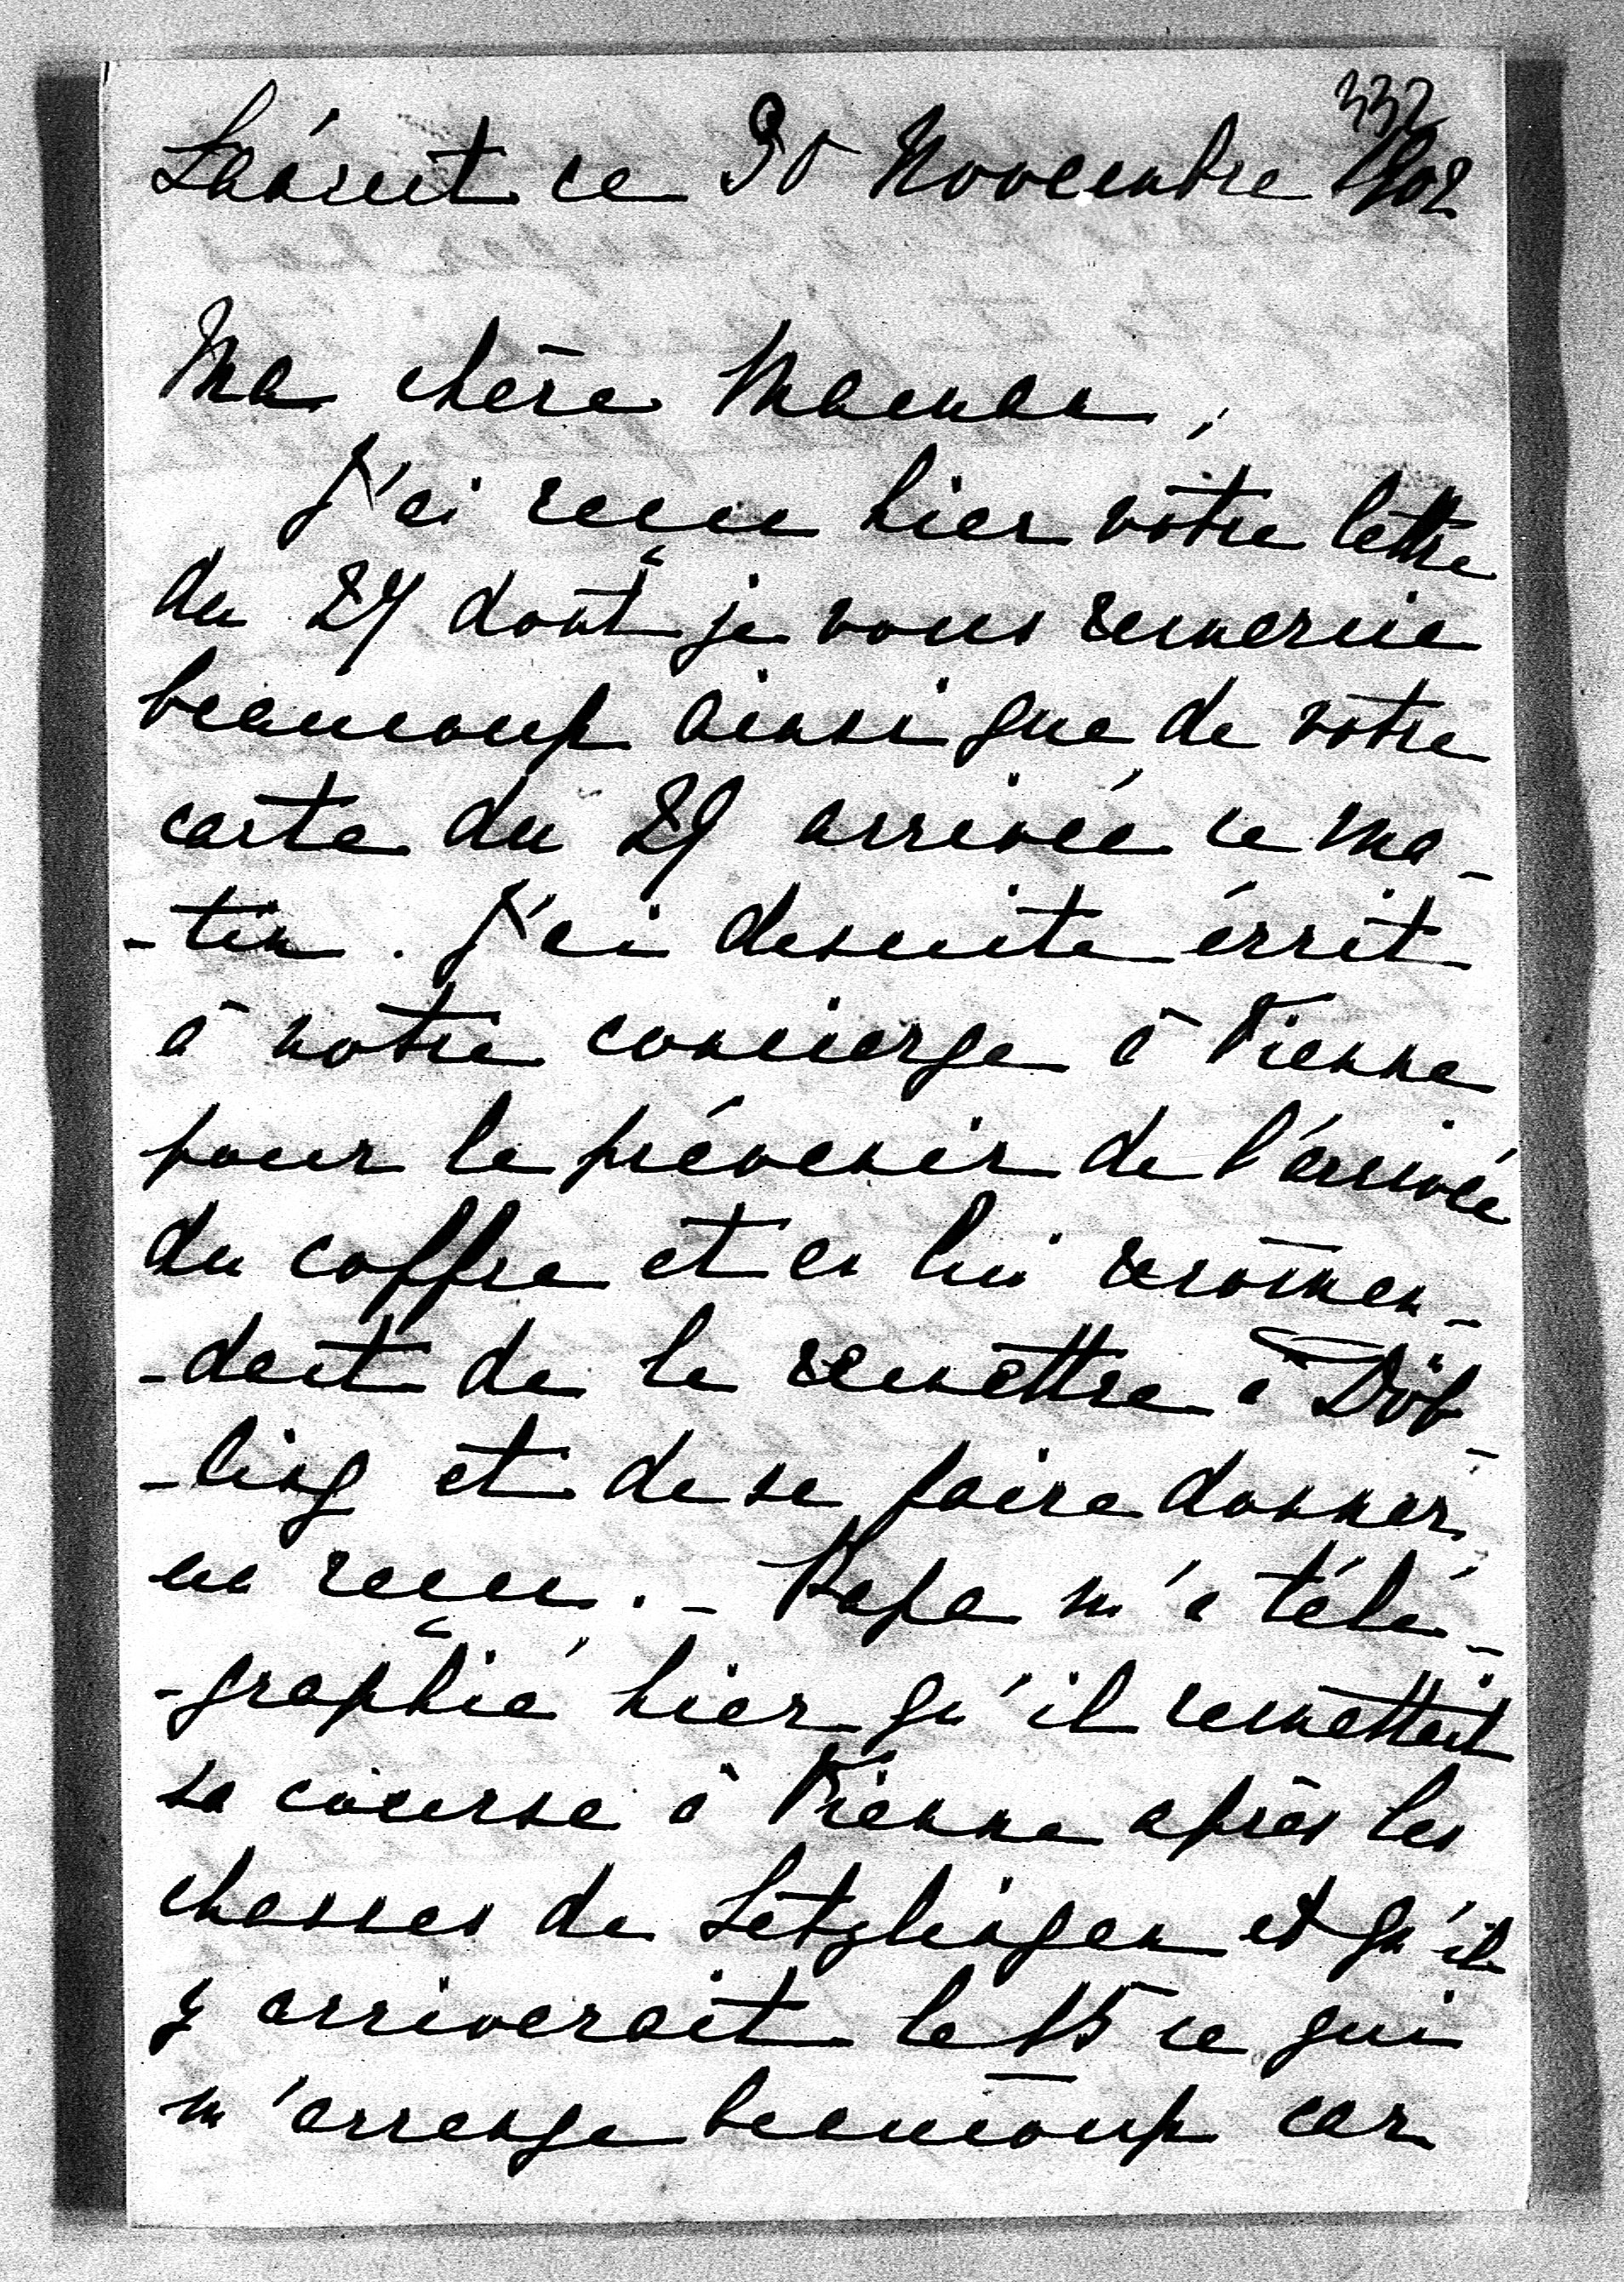 332
Łańcut ce 30 Novembre 1902
Ma chère Maman,
J'ai reçu hier votre lettre
du 27 dont je vous remercie
beaucoup ainsi que de votre
carte du 29 arrivée ce ma-
-tin. J'ai desuite écrit
à notre concierge à Vienne
pour le prévenir de l'arrivée
du coffre et en lui recom̄en-
-dant de le remettre à Döb-
-ling et de se faire donner
un reçu. - Papa m'a télé-
-graphié hier qu'il remettait
sa course à Vienne après les
chasses de Letzlingen et qu'il
y arriverait le 15 ce qui
m'arrange beaucoup car